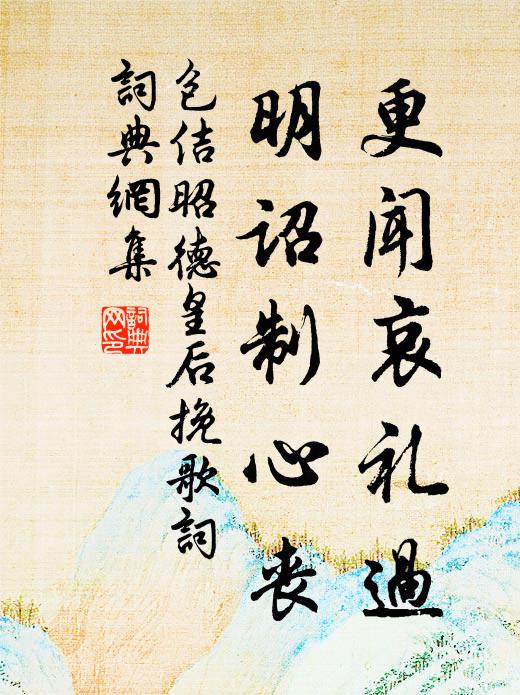 更闻哀礼過
明詔制心丧
包佶昭德皇后挽歌詞
詞典網集
詞典网印